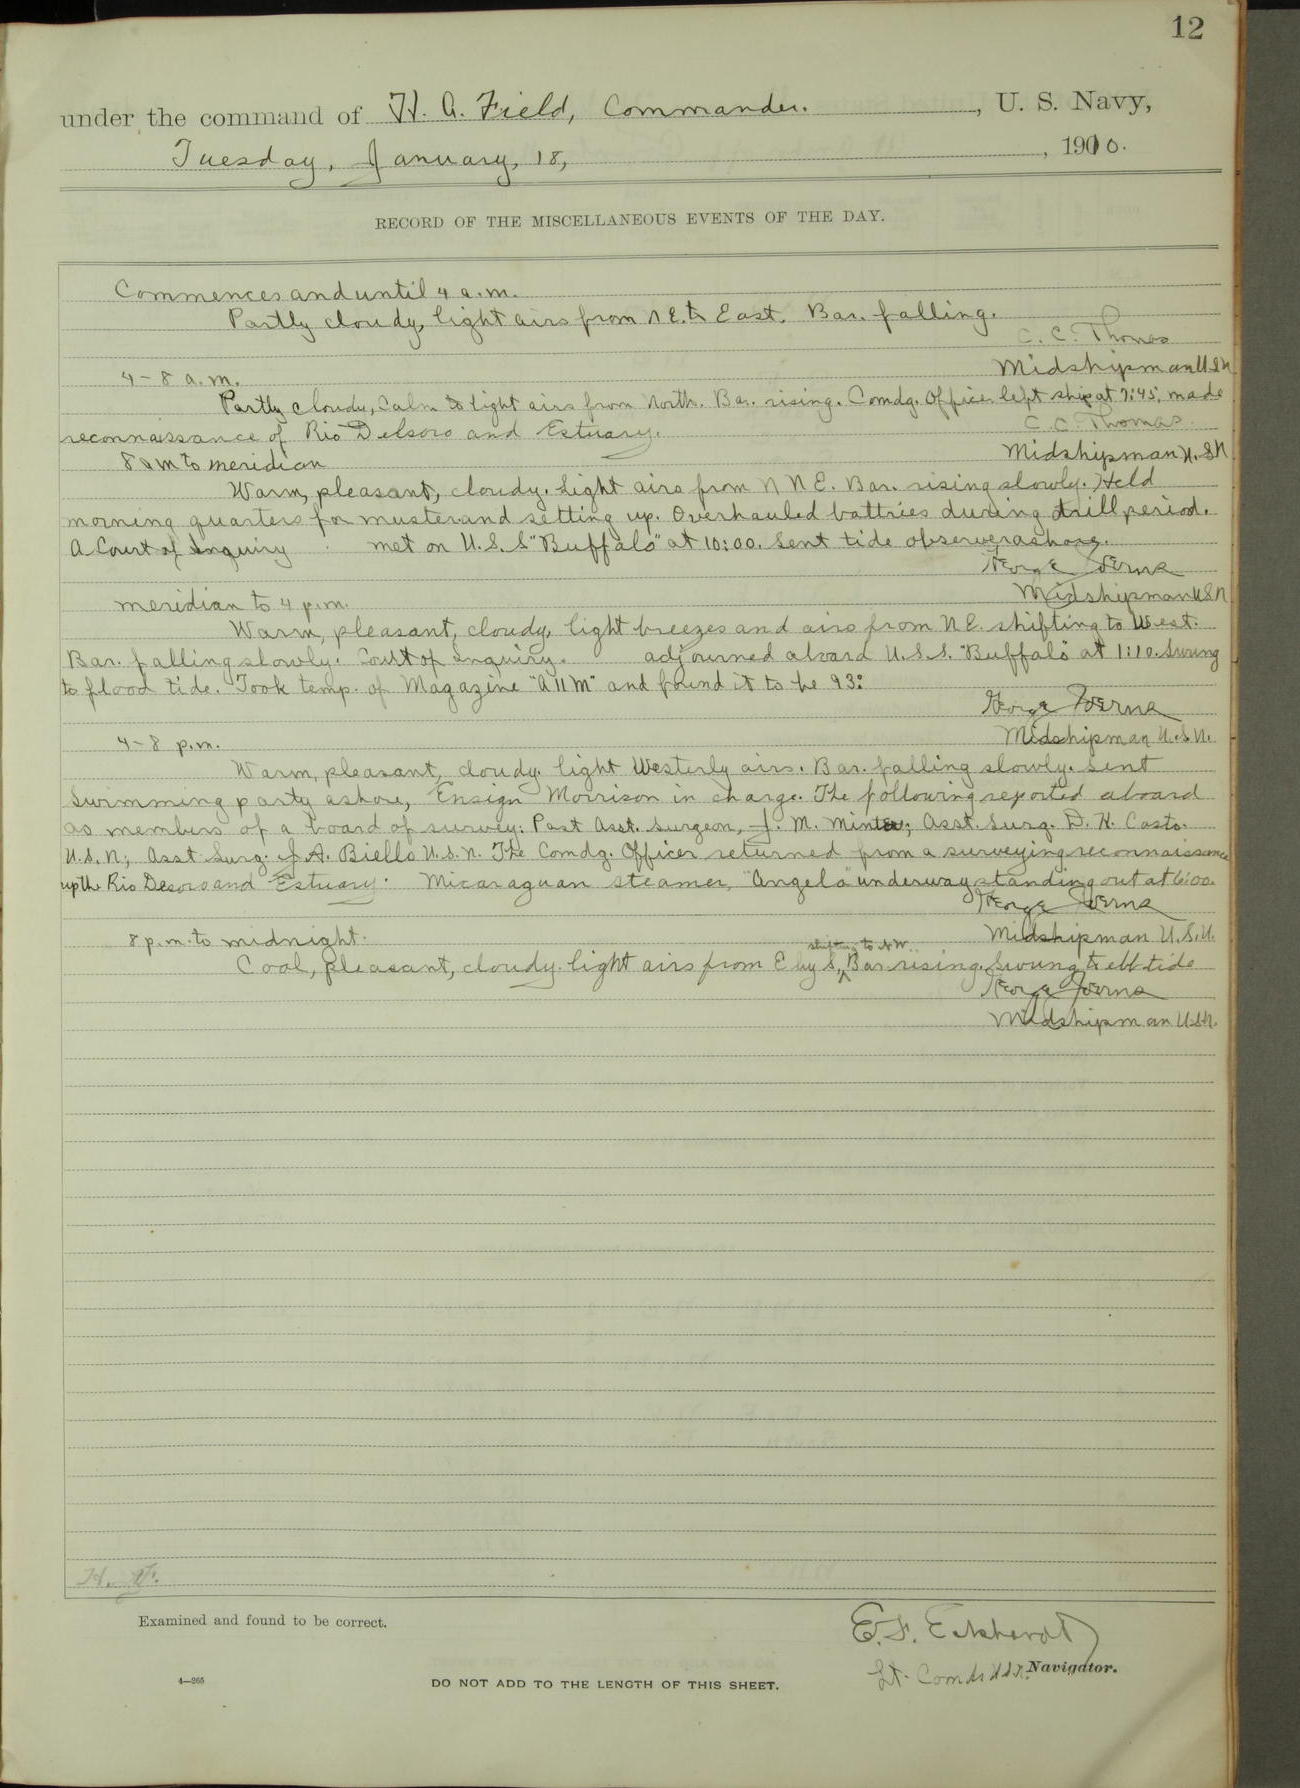 12
under the command of H. A. Field, Commander. , U. S. Navy,
Tuesday, January, 18, , 1910.
RECORD OF THE MISCELLANEOUS EVENTS OF THE DAY.
Commences and until 4 a.m.
Partly cloudy, light airs from NE. to East. Bar. falling.
C. C. Thomas
Midshipman USN
4-8 a.m.
Partly cloudy, Calm to light airs from North. Bar. rising. Comdg. Officer left ship at 7:45, made
reconnaissance of Rio Delsoro and Estuary.
C. C. Thomas.
Midshipman U.SN
8 am to meridian
Warm, pleasant, cloudy. Light airs from NNE. Bar. rising slowly. Held
morning quarters for muster and setting up. Overhauled battries during drill period.
A Court of Inquiry met on U.S.S "Buffalo" at 10:00. Sent tide observer ashore.
George Joerns
Midshipman USN
meridian to 4 p.m.
Warm, pleasant, cloudy, light breezes and airs from NE. shifting to West.
Bar. falling slowly. Court of Inquiry. adjourned aboard U.S.S. "Buffalo" at 1:10. Swung
to flood tide. Took temp. of Magazine "A 11 M" and found it to be 93°
George Joerns
Midshipman U.S.N.
4-8 p.m.
Warm, pleasant, cloudy. light Westerly airs. Bar. falling slowly. Sent
Swimming party ashore, Ensign Morrison in charge. The following reported aboard
as members of a board of survey: Past Asst. Surgeon, J. M. Minter; Asst. Surg. D. H. Casto.
U.S.N; Asst. Surg. J. A. Biello U.S.N. The Comdg. Officer returned from a surveying reconnaissance
up the Rio Desoro and Estuary. Nicaraguan steamer, "Angela" underway standing out at 6:00.
George Joerns
Midshipman U.S.N.
8 p.m. to midnight.
shifting to NW.
Cool, pleasant, cloudy. light airs from E by S, ^ Bar rising. Swung to ebb tide
George Joerns
Midshipman U.S.N.
H. F.
Examined and found to be correct.
E. F. Eckhardt
Lt. Comdr U.S.N. Navigator.
4—265
DO NOT ADD TO THE LENGTH OF THIS SHEET.